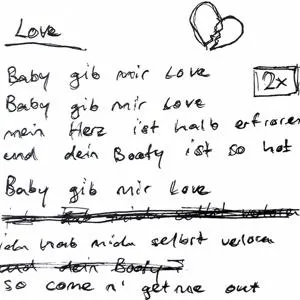 Love
Baby gib mir Love
2x
Baby gib mir Love
mein Herz ist halb erfroren
und dein Booty ist so hot
Baby gib mir Love
ich hab mich selbst verloren
und dein Booty
so come n' get me out